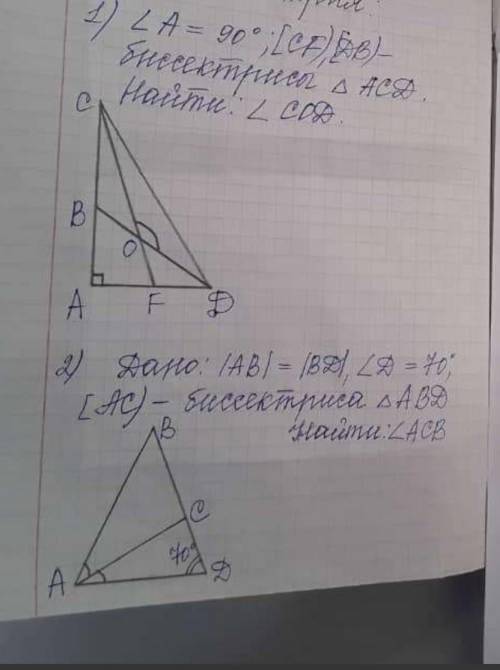 1) ∠A = 90°; [CF), [DB) –
биссектрисы △ ACD.
Найти: ∠ COD.
C
B
O
A
F
D
2) Дано: |AB| = |BD|, ∠D = 70°;
[AC) – биссектриса △ABD
Найти: ∠ACB
B
C
70°
A
D